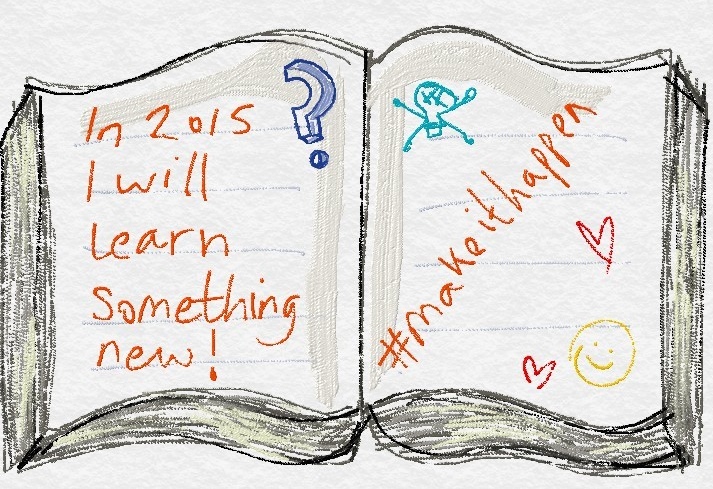 In 2015
I will
Learn
Something
new!
#makeithappen